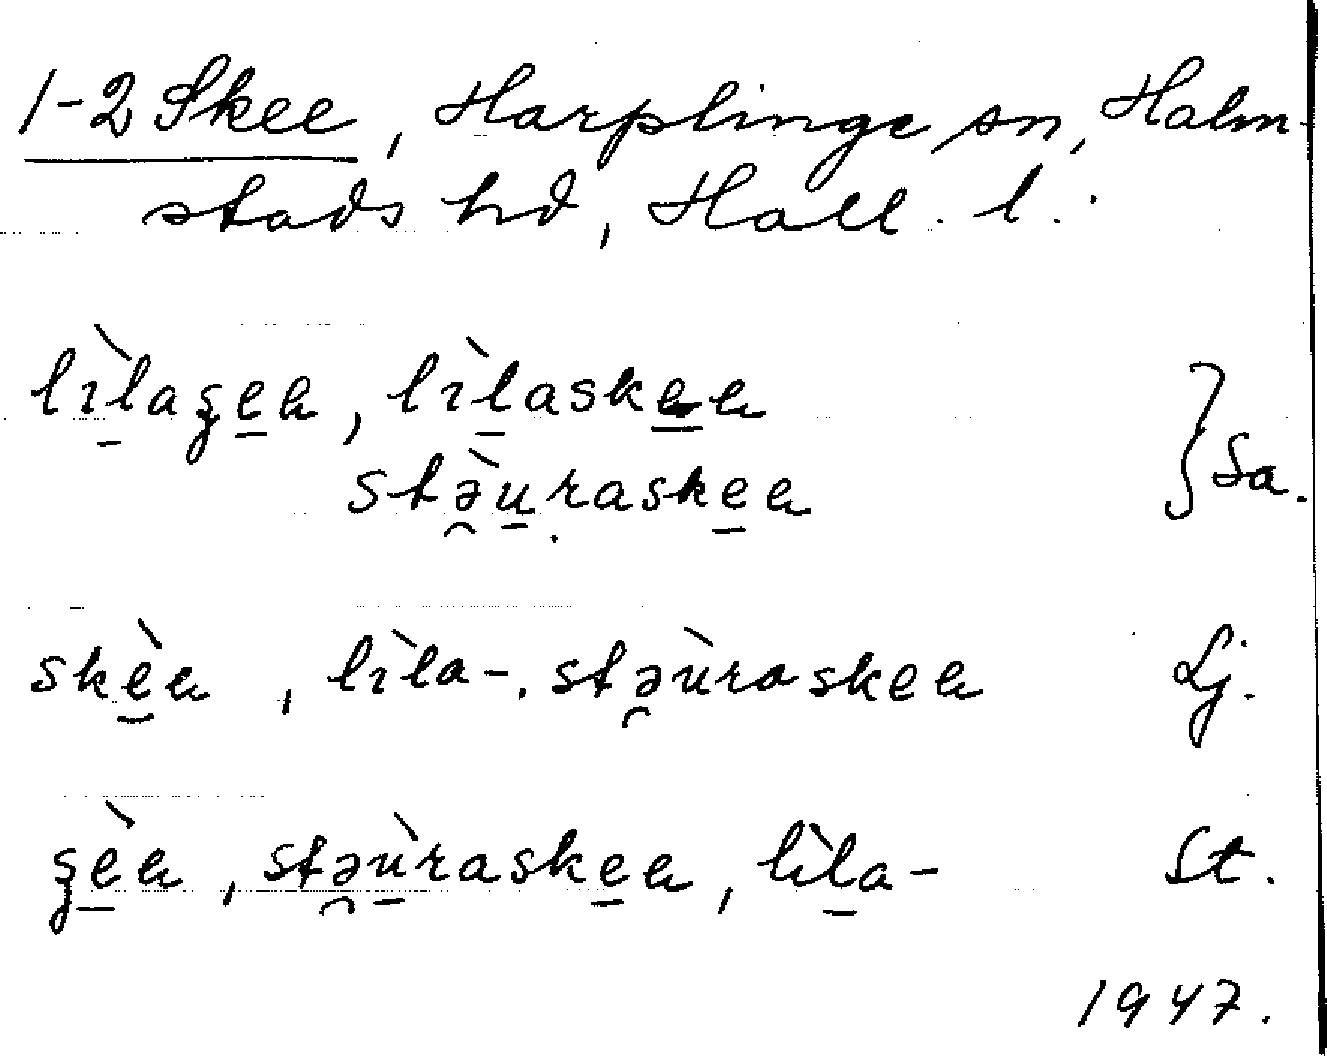 1-2 Skee, Harplinge sn, Halm-
stads hd, Hall. l.
lı̀l̠aʂe̠a, lı̀l̠aske̠a
stə̯ù̠raske̠a } Sa.
skè̠a, lı̀la-, stə̯ùraskea Lj.
ʂè̠a, stə̯ù̠raske̠a, lı̀l̠a- St.
1947.